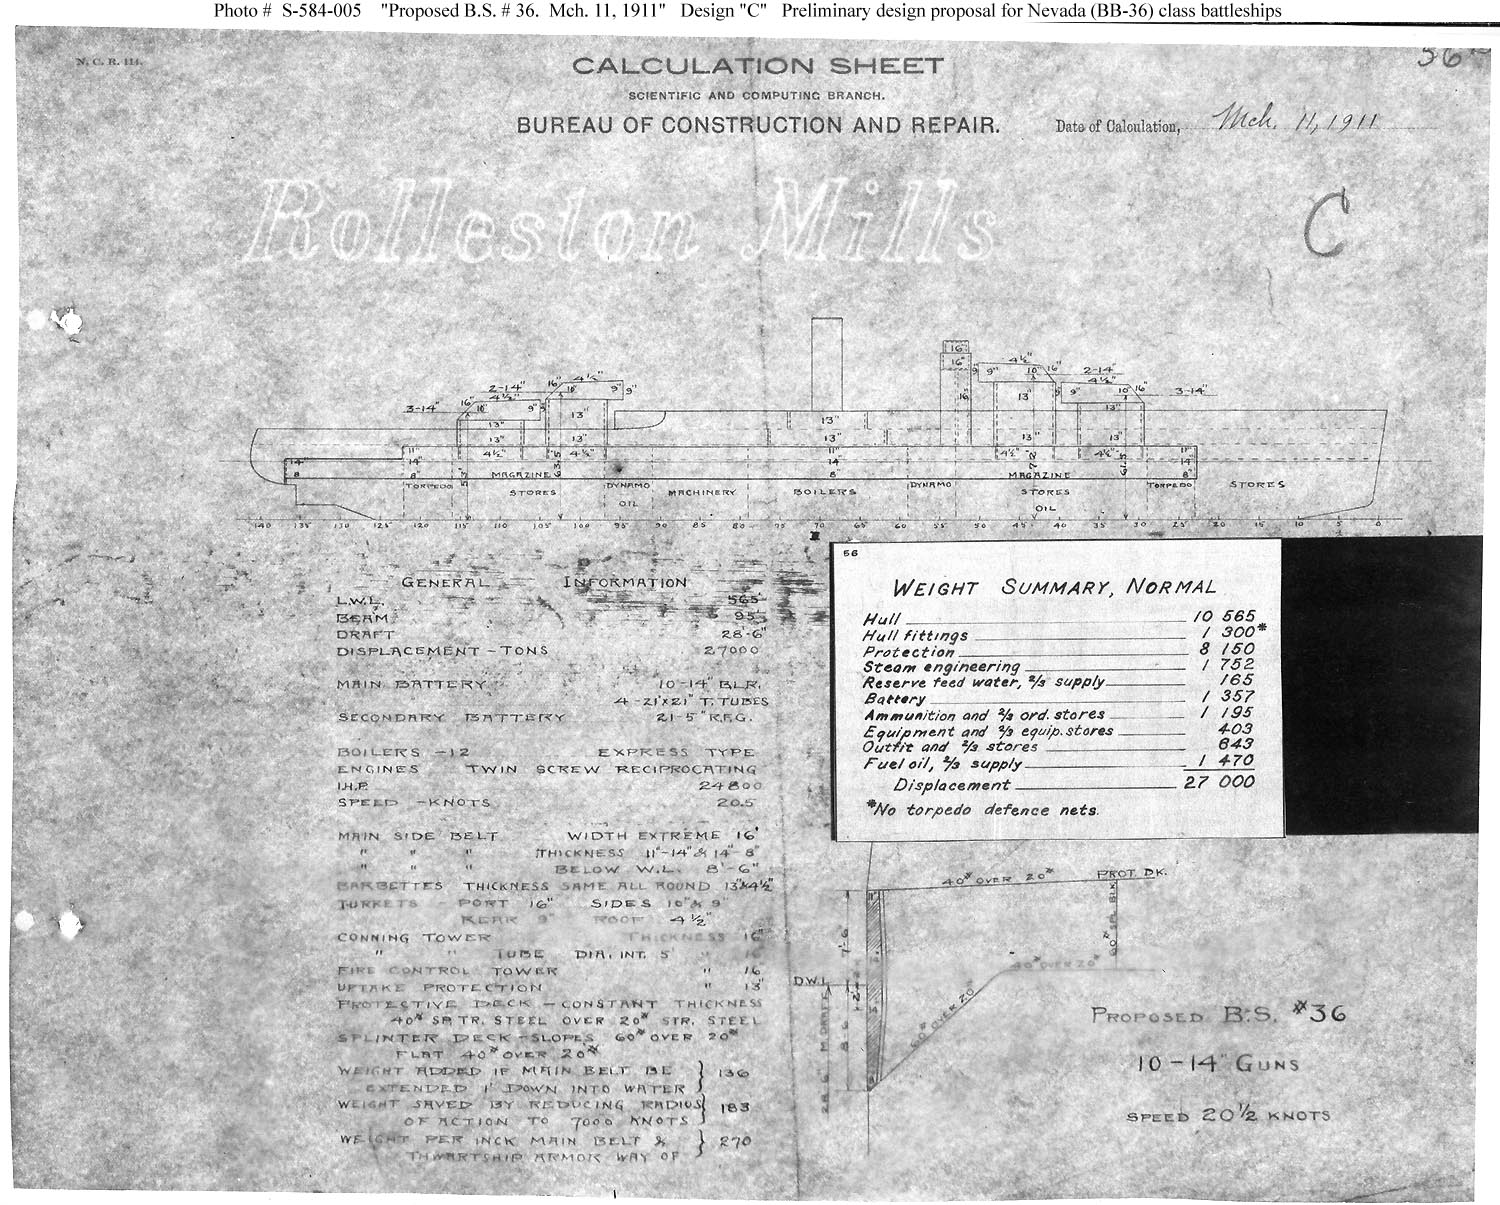 Photo #  S-584-005    "Proposed B.S. # 36.  Mch. 11, 1911"   Design "C"   Preliminary design proposal for Nevada (BB-36) class battleships
N. C. R. 111.
56
CALCULATION SHEET
SCIENTIFIC AND COMPUTING BRANCH.
BUREAU OF CONSTRUCTION AND REPAIR.
Date of Calculation, Mch. 11, 1911
Rolleston Mills
C
16"
16" 4½" 2-14"
9" 9" 10" 16" 4½" 10" 16" 3-14"
16" 13" 13"
2-14" 16" 4½" 10" 9" 9"
3-14" 16" 4½" 10" 9" 13"
13" 13" 13" 13"
13" 13" 13"
4½" 4½" 11" 4½" 4½" 11"
11" 14" 14" 14"
14" 8" 8" 8" 8"
53' 63.5 72 61.5
MAGAZINE MAGAZINE
TORPEDO STORES DYNAMO MACHINERY BOILERS DYNAMO STORES TORPEDO STORES
OIL OIL
140 135 130 125 120 115 110 105 100 95 90 85 80 75 70 65 60 55 50 45 40 35 30 25 20 15 10 5 0
GENERAL INFORMATION
L.W.L. 565'
BEAM 95'
DRAFT 28'-6"
DISPLACEMENT - TONS 27000
MAIN BATTERY 10-14" B.L.R.
4-21'X21" T. TUBES
SECONDARY BATTERY 21-5" R.F.G.
BOILERS -12 EXPRESS TYPE
ENGINES TWIN SCREW RECIPROCATING
I.H.P. 24800
SPEED -KNOTS 20.5
MAIN SIDE BELT WIDTH EXTREME 16'
" " " THICKNESS 11"-14" & 14"-8"
" " " BELOW W.L. 8'-6"
BARBETTES THICKNESS SAME ALL ROUND 13"X4½"
TURRETS - PORT 16" SIDES 10" & 9"
REAR 9" ROOF 4½"
CONNING TOWER THICKNESS 16"
" " TUBE DIA. INT. 5' " 16
FIRE CONTROL TOWER " 16
UPTAKE PROTECTION " 13"
PROTECTIVE DECK - CONSTANT THICKNESS
40# SP. TR. STEEL OVER 20# STR. STEEL
SPLINTER DECK -SLOPES 60# OVER 20#
FLAT 40# OVER 20#
WEIGHT ADDED IF MAIN BELT BE } 136
EXTENDED 1' DOWN INTO WATER
WEIGHT SAVED BY REDUCING RADIUS } 183
OF ACTION TO 7000 KNOTS
WEIGHT PER INCH MAIN BELT & } 270
THWARTSHIP ARMOR WAY OF
56
WEIGHT SUMMARY, NORMAL
Hull 10 565
Hull fittings 1 300*
Protection 8 150
Steam engineering 1 752
Reserve feed water, 2/3 supply 165
Battery 1 357
Ammunition and 2/3 ord. stores 1 195
Equipment and 2/3 equip. stores 403
Outfit and 2/3 stores 643
Fuel oil, 2/3 supply 1 470
Displacement 27 000
*No torpedo defence nets.
40# OVER 20# PROT. DK.
11"
7'-6
60# SPL. BLK.
40# OVER 20#
D.W.L.
60# OVER 20#
8'-6
28'-6" M. DRAFT
14
8"
PROPOSED B.S. #36
10-14" GUNS
SPEED 20½ KNOTS